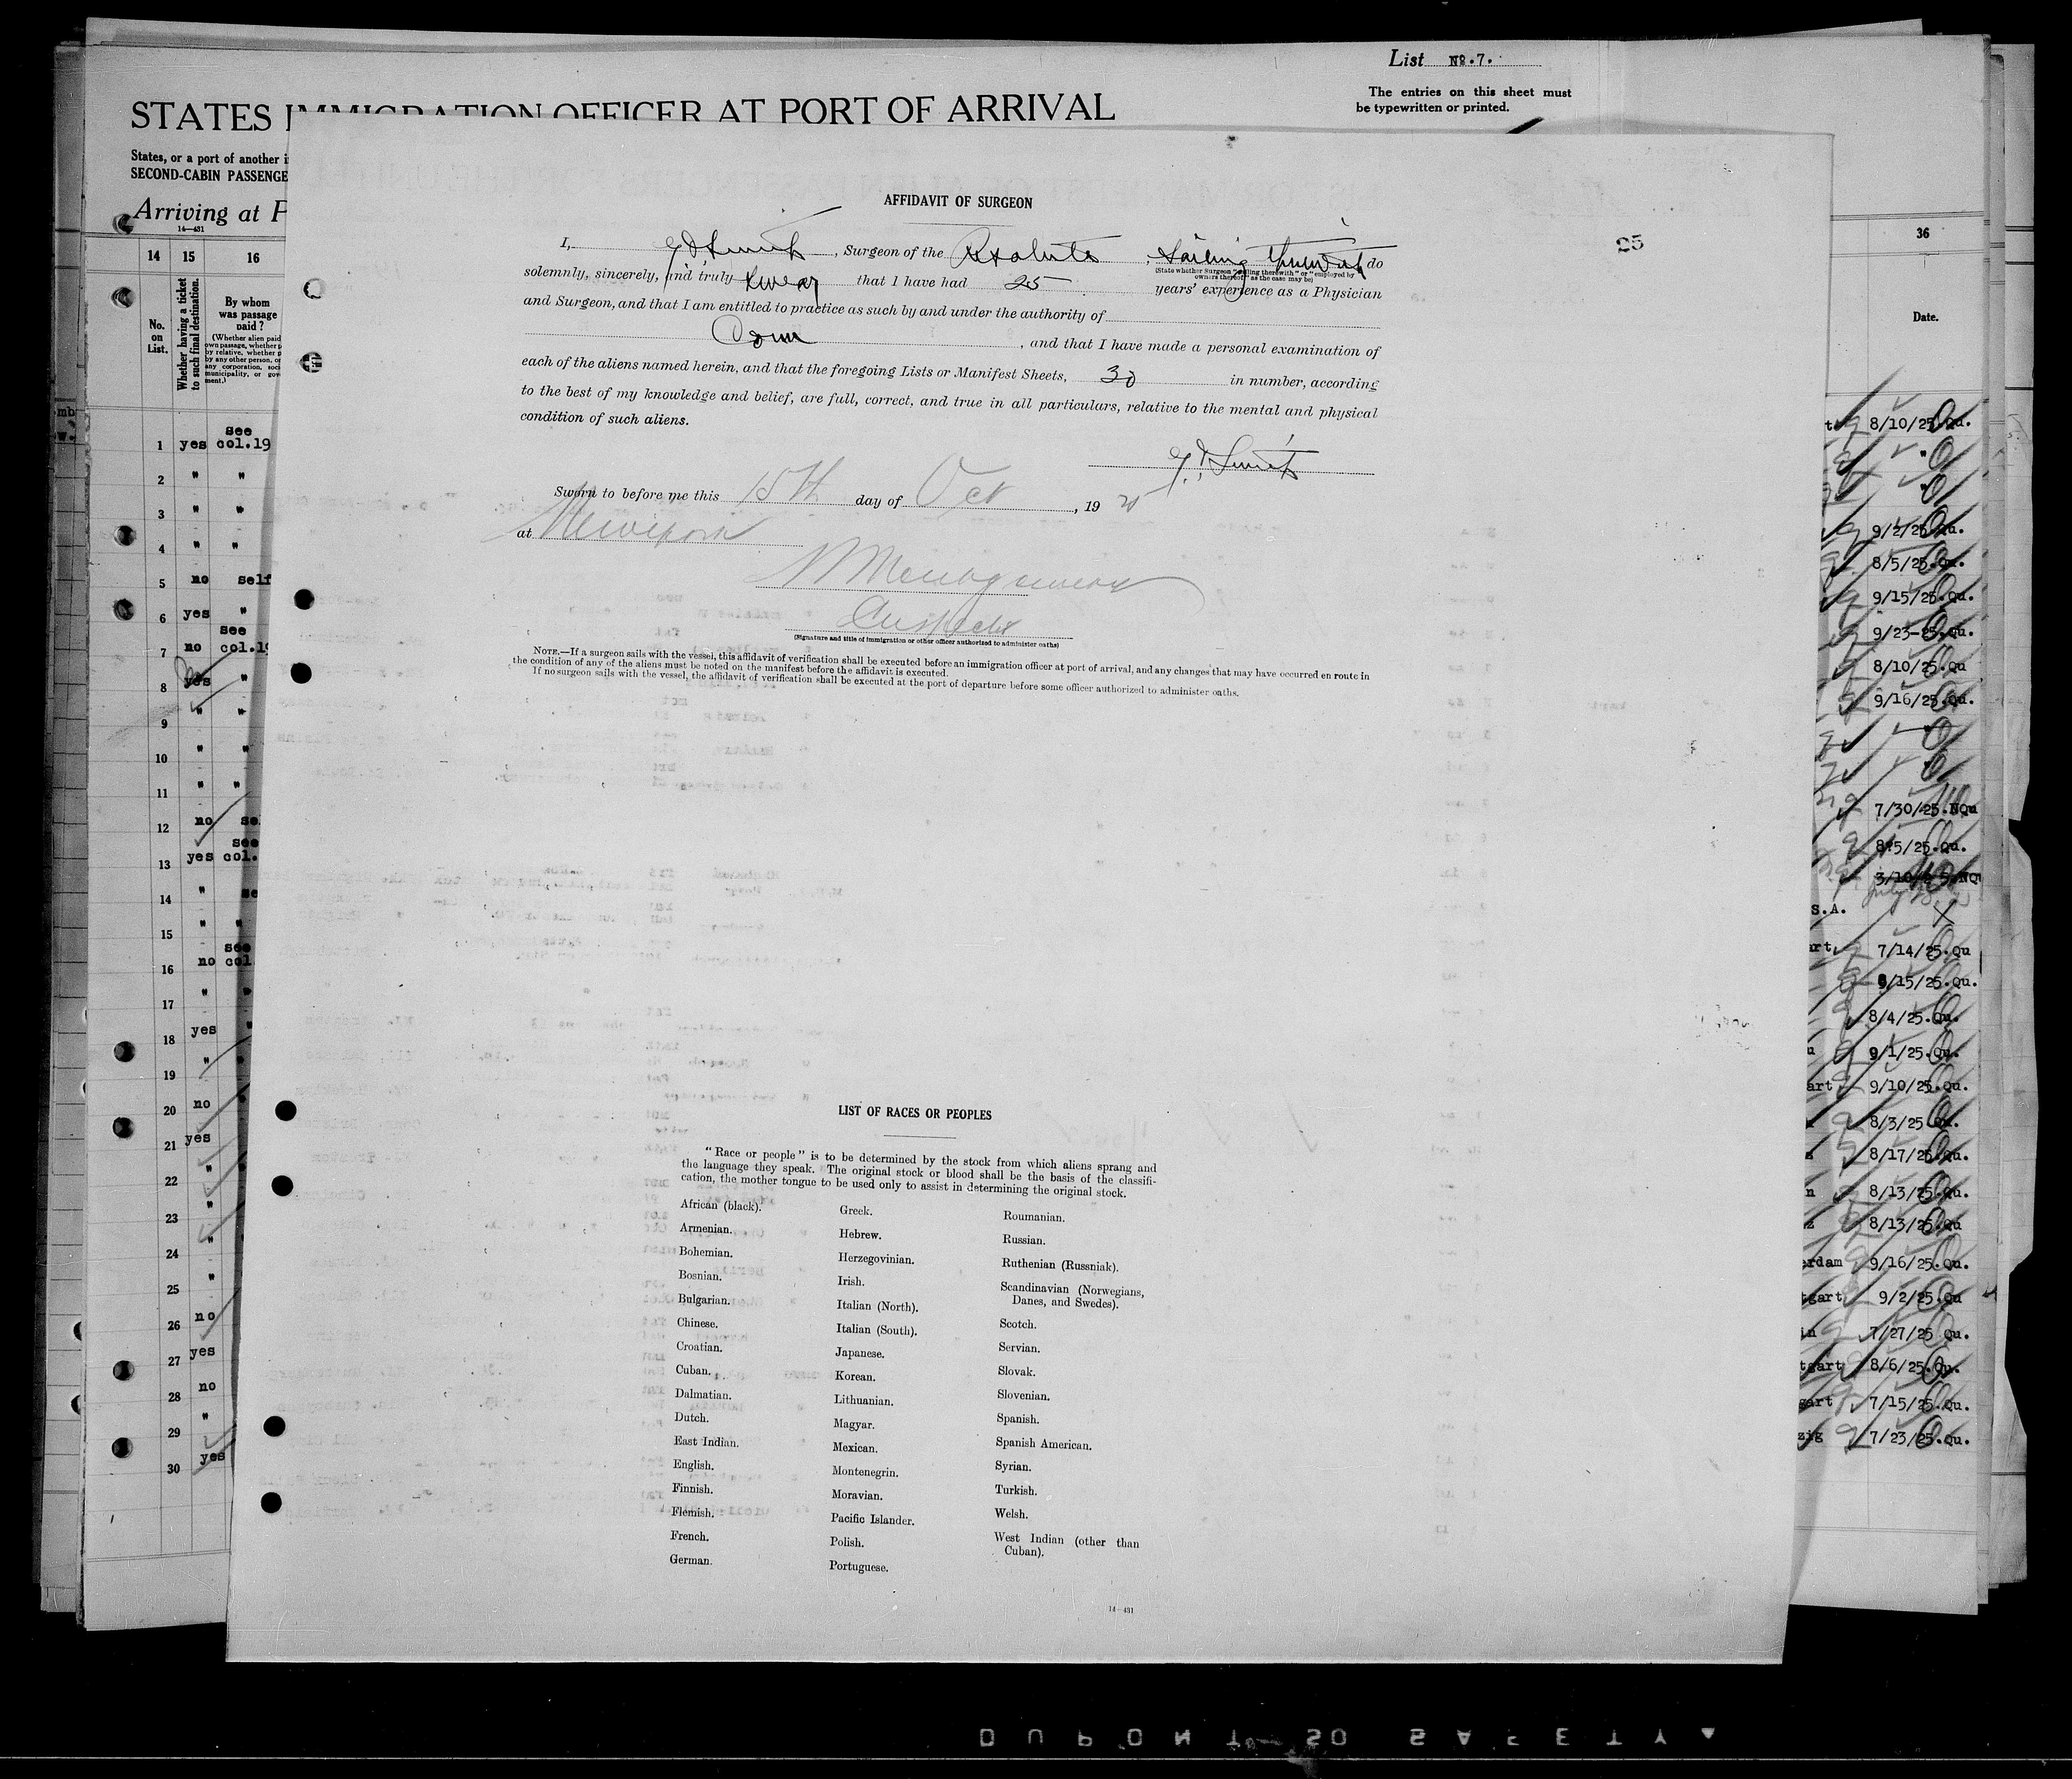 List No. 7.
The entries on this sheet must
be typewritten or printed.
STATES IMMIGRATION OFFICER AT PORT OF ARRIVAL
States, or a port of another i
SECOND-CABIN PASSENGE
Arriving at P
14—431
14 15 16
No. on List.
Whether having a ticket to such final destination.
By whom was passage paid?
(Whether alien paid
own passage, whether p
by relative, whether p
by any other person, or
any corporation, soci
municipality, or gov
ment.)
see
1 yes col.19
2 " "
3 " "
4 " "
5 no self
6 yes "
see
7 no col.19
8 yes "
9 " "
10 " "
11 " "
12 no se
see
13 yes col.
14 " se
15 " "
see
16 no col
17 " "
18 yes "
19 " "
20 no
21 yes
22 "
23 "
24 "
25 "
26 no
27 yes
28 no
29 "
30 yes
25
AFFIDAVIT OF SURGEON
I, , Surgeon of the Resolute , Sailing therewith do
(State whether Surgeon "sailing therewith" or "employed by
owners thereof," as the case may be)
solemnly, sincerely, and truly swear that I have had 25 years' experience as a Physician
and Surgeon, and that I am entitled to practice as such by and under the authority of
Conn , and that I have made a personal examination of
each of the aliens named herein, and that the foregoing Lists or Manifest Sheets, 30 in number, according
to the best of my knowledge and belief, are full, correct, and true in all particulars, relative to the mental and physical
condition of such aliens.
Sworn to before me this 15th day of Oct , 19 25
at New York
Inspector
(Signature and title of immigration or other officer authorized to administer oaths)
NOTE.—If a surgeon sails with the vessel, this affidavit of verification shall be executed before an immigration officer at port of arrival, and any changes that may have occurred en route in
the condition of any of the aliens must be noted on the manifest before the affidavit is executed.
If no surgeon sails with the vessel, the affidavit of verification shall be executed at the port of departure before some officer authorized to administer oaths.
LIST OF RACES OR PEOPLES
"Race or people" is to be determined by the stock from which aliens sprang and
the language they speak. The original stock or blood shall be the basis of the classifi-
cation, the mother tongue to be used only to assist in determining the original stock.
African (black).
Armenian.
Bohemian.
Bosnian.
Bulgarian.
Chinese.
Croatian.
Cuban.
Dalmatian.
Dutch.
East Indian.
English.
Finnish.
Flemish.
French.
German.
Greek.
Hebrew.
Herzegovinian.
Irish.
Italian (North).
Italian (South).
Japanese.
Korean.
Lithuanian.
Magyar.
Mexican.
Montenegrin.
Moravian.
Pacific Islander.
Polish.
Portuguese.
Roumanian.
Russian.
Ruthenian (Russniak).
Scandinavian (Norwegians,
Danes, and Swedes).
Scotch.
Servian.
Slovak.
Slovenian.
Spanish.
Spanish American.
Syrian.
Turkish.
Welsh.
West Indian (other than
Cuban).
14—431
36
Date.
8/10/25.Qu.
"
"
9/2/25.Qu.
8/5/25.Qu.
9/15/25.Qu.
9/23-25.Qu.
8/10/25.Qu
9/16/25.Qu.
7/30/25.NQu
8?5/25.Qu.
3/10/25.NQ
S.A. X
art 7/14/25.Qu
9/15/25.Qu.
8/4/25.Qu.
u 9/1/25.Qu.
art 9/10/25.Qu.
8/3/25 Qu.
s 8/17/25.Qu.
n 8/13/25.Qu.
z 8/13/25.Qu
erdam 9/16/25.Qu.
tgart 9/2/25.Qu
in 7/27/25 Qu.
tgart 8/6/25.Qu.
gart 7/15/25.Qu.
zig 7/23/25.Qu.
DUPONT SO SAFETY